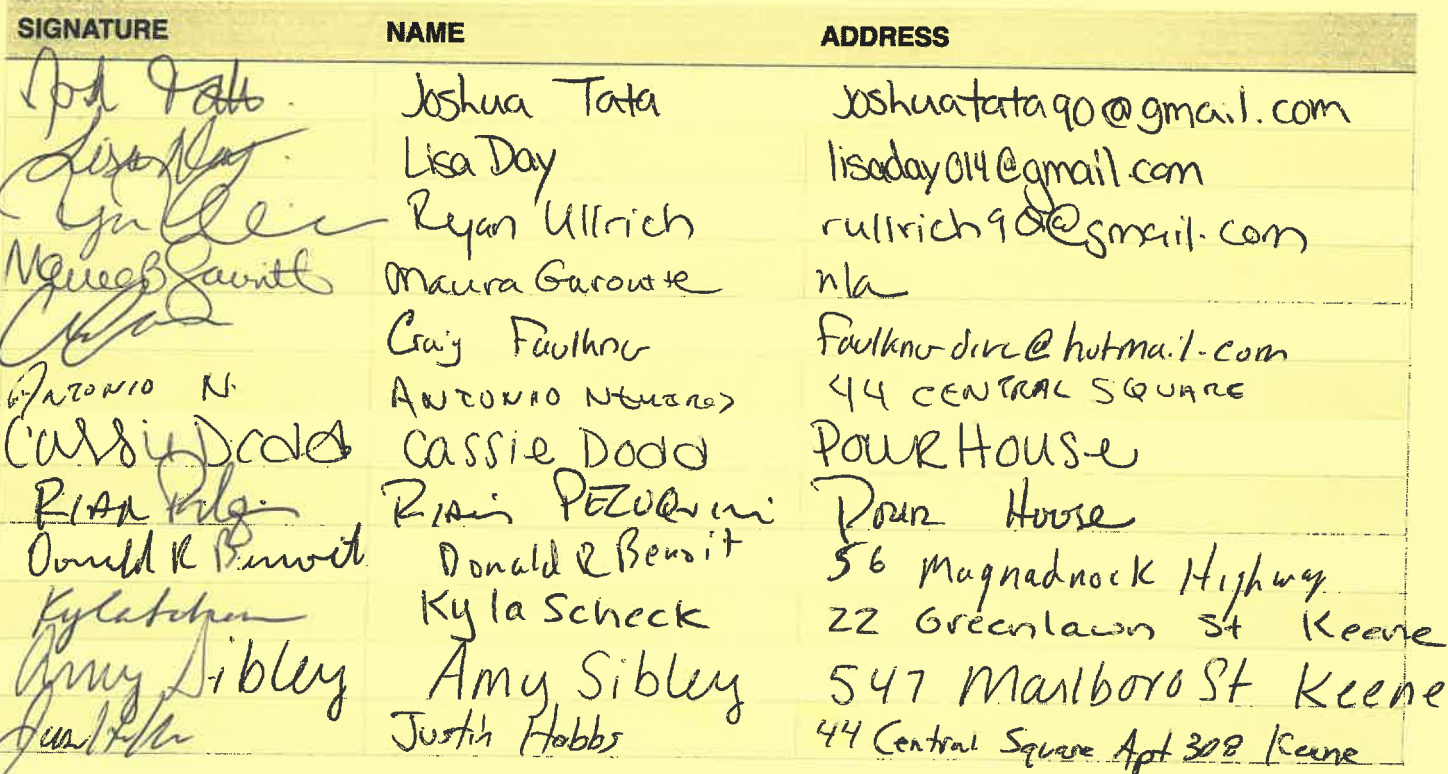 SIGNATURE NAME ADDRESS
Joshua Tata Joshuatata90@gmail.com
Lisa Day Lisa Day lisaday014@gmail.com
Ryan Ullrich rullrich90@gmail.com
Maura Garoutte n/a
Craig Faulkner Faulknerdirc@hotmail.com
ANTONIO N. ANTONIO 44 CENTRAL SQUARE
Cassie Dodd Cassie Dodd POURHOUSE
RIAN Pour House
Donald R Benoit Donald R Benoit 56 Magnadnock Highway
Kyla Scheck 22 Greenlawn St Keene
Amy Sibley Amy Sibley 547 Marlboro St Keene
Justin Hobbs 44 Central Square Apt 308 Keene